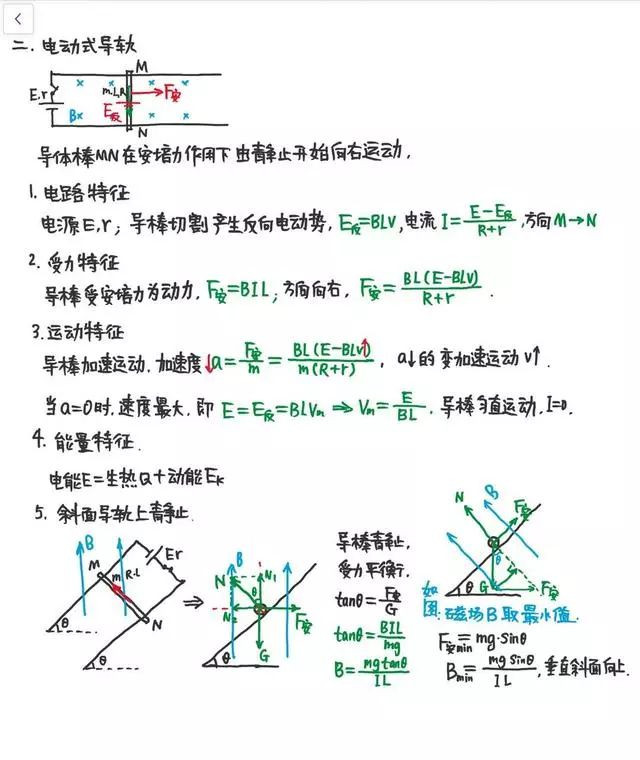 二. 电动式导轨
M
E.r
m.L.R
F安
B×
E反
N
导体棒MN在安培力作用下由静止开始向右运动.
1. 电路特征
电源E,r; 导棒切割产生反向电动势, E反=BLV, 电流 I=\frac{E-E反}{R+r}, 方向M→N
2. 受力特征
导棒受安培力为动力, F安=BIL; 方向向右, F安=\frac{BL(E-BLV)}{R+r}.
3. 运动特征
导棒加速运动. 加速度↓a=\frac{F安}{m}=\frac{BL(E-BLV↑)}{m(R+r)}, a↓的变加速运动V↑.
当a=0时, 速度最大, 即 E=E反=BLVm ⇒ Vm=\frac{E}{BL}. 导棒匀直运动, I=0.
4. 能量特征.
电能E=生热Q+动能Ek
5. 斜面导轨上静止.
B
M
m
R.L
Er
N
θ
θ
⇒
B
N
N1
θ
N2
F安
G
θ
导棒静止,
受力平衡.
tanθ=\frac{F安}{G}
tanθ=\frac{BIL}{mg}
B=\frac{mgtanθ}{IL}
N
B
F安
θ
G
F安
如图:磁场B取最小值.
F安min=mg·sinθ
Bmin=\frac{mgSinθ}{IL}, 垂直斜面向上.